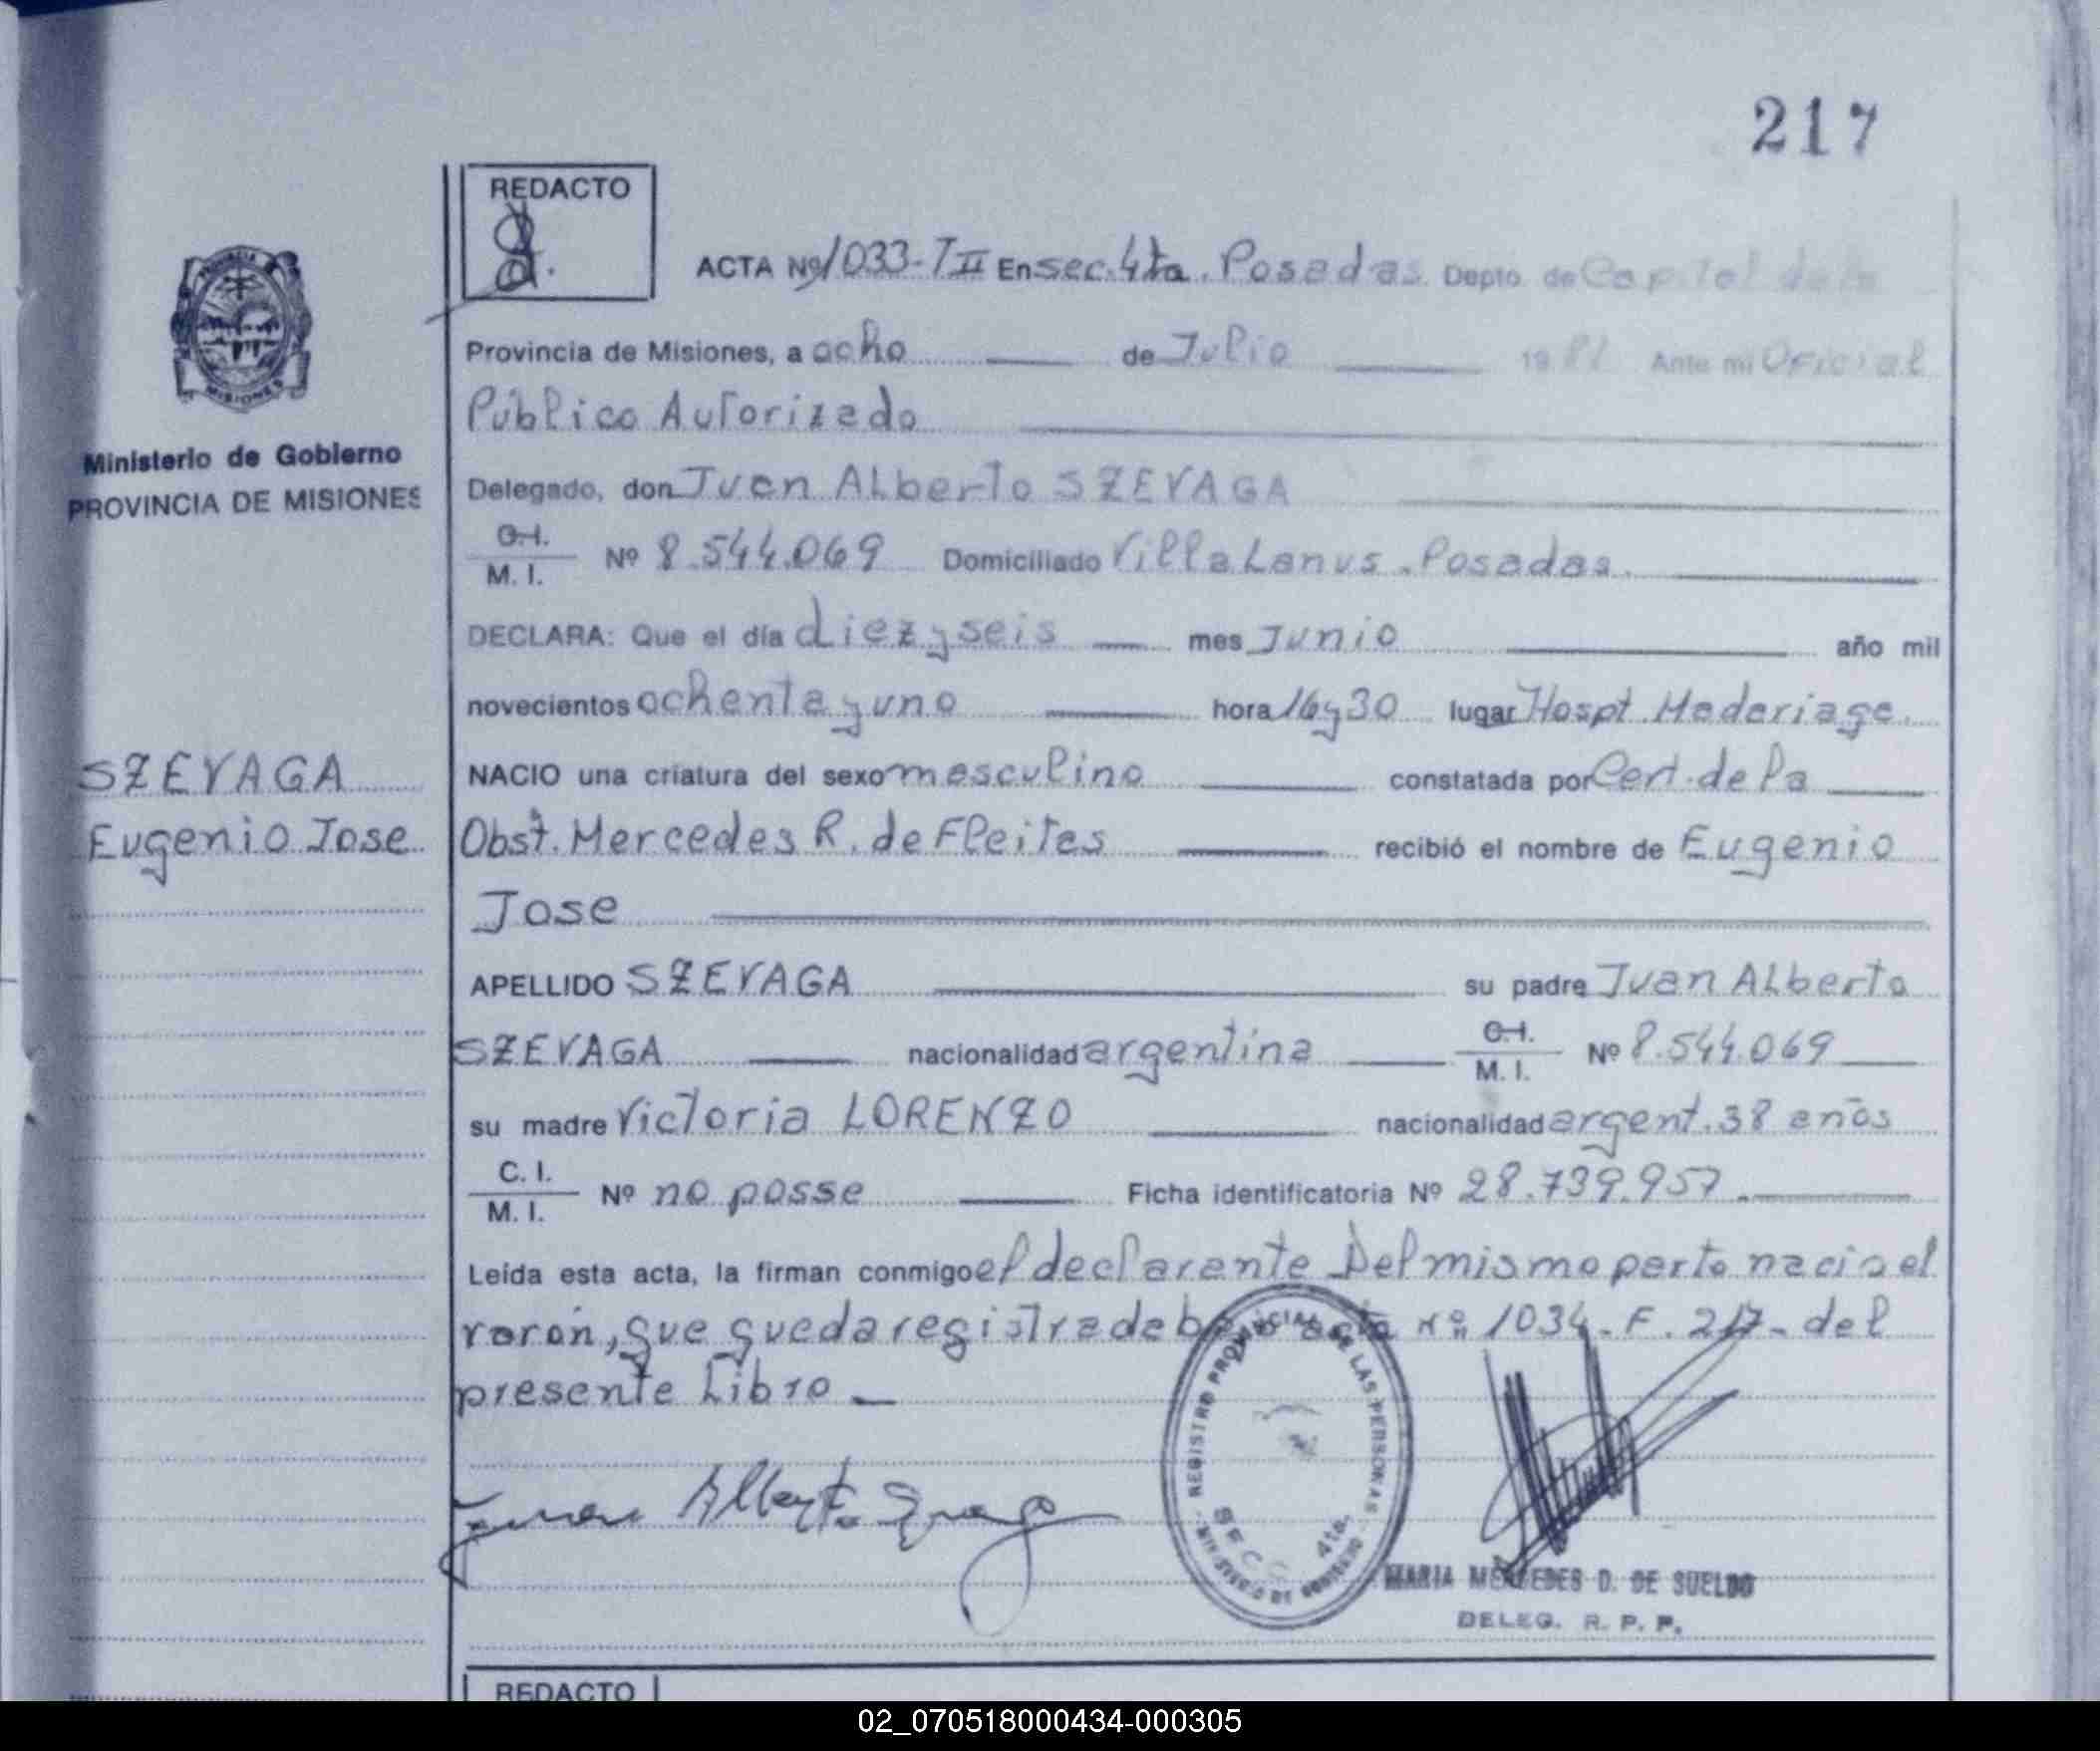 217
REDACTO
ACTA Nº 1033-T II En sec. 4ta. Posadas Depto. de Capital de la
Provincia de Misiones, a ocho de Julio 1981 Ante mi Oficial
Público Autorizado
Ministerio de Gobierno
PROVINCIA DE MISIONES
Delegado, don Juan ALberto SZEVAGA
C.I. M.I. Nº 8.544.069 Domiciliado Villa Lanus. Posadas.
DECLARA: Que el día diez y seis mes Junio año mil
novecientos ochenta y uno hora 16 y 30 lugar Hospt. Madariaga.
SZEVAGA
NACIO una criatura del sexo masculino constatada por Cert. de la
Eugenio Jose
Obst. Mercedes R. de Fleitas recibió el nombre de Eugenio
Jose
APELLIDO SZEVAGA su padre Juan ALberto
SZEVAGA nacionalidad argentina C.I. M.I. Nº 8.544.069
su madre Victoria LORENZO nacionalidad argent. 38 años
C.I. M.I. Nº no posse Ficha identificatoria Nº 28.739.957.
Leída esta acta, la firman conmigo el declarante Del mismo parto nacio el
varón, que queda registrada bajo acta Nº 1034. F. 217. del
presente Libro
Juan Alberto
REGISTRO PROVINCIAL DE LAS PERSONAS
MINISTERIO DE GOBIERNO
SECC. 4ta.
MARIA MERCEDES D. DE SUELDO
DELEG. R. P. P.
REDACTO
02_070518000434-000305